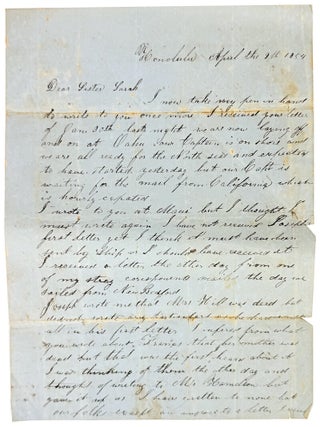 Honolulu April the 9th 1854
Dear Sister Sarah
I now take my pen in hand
to write to you once more I received your letter
of Jan 30th last night we are now laying off
and on at Oahu our Captain is on shore and
we are all ready for the North sea and expected
to have started yesterday but our Capt is
waiting for the mail from California which
is hourly expected
I wrote to you at Maui but I thought I
must write again I have not received Josephs
first letter yet I think it must have been
sent by Ship or I should have received it
I received a letter the other day from one
of my correspondents the day we
sailed from New Bedford
Joseph wrote me that Mrs Hill was dead but
wrote no
all in his first letter I inferred from what
you wrote about that her mother was
dead but that was the first I heard about it
I was thinking of them the other day and
thought of writing to Mrs Hamilton but
gave it up as I have written to none but
our folks except an answer to a letter I